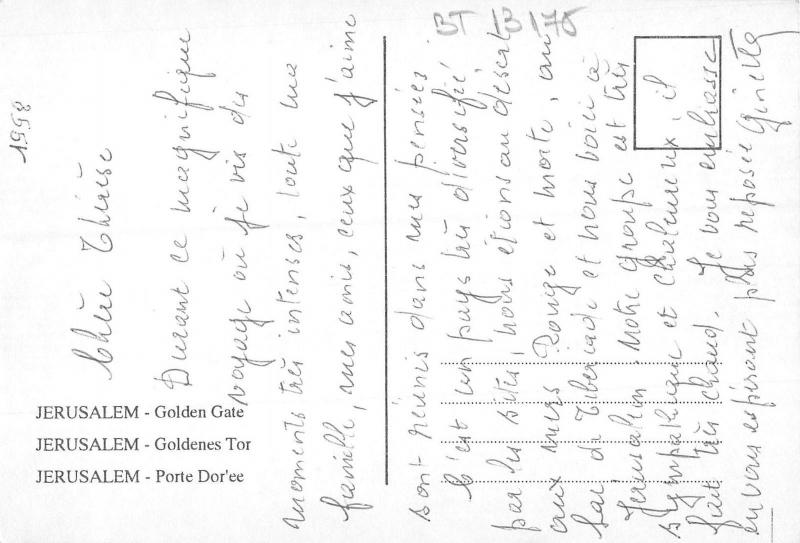 1998
Chère Thérèse
Durant ce magnifique
voyage où je vis des
moments très intenses, toute ma
famille, mes amis, ceux que j'aime
sont réunis dans mes pensées
C'est un pays très diversifié,
par les sites, nous étions au désert
aux mers Rouge et morte, au
Lac de Tibériade et nous voici à
Jérusalem. Notre groupe est très
sympathique et chaleureux, il
fait très chaud. Je vous embrasse
en vous espérant plus reposée Ginette
JERUSALEM - Golden Gate
JERUSALEM - Goldenes Tor
JERUSALEM - Porte Dor'ee